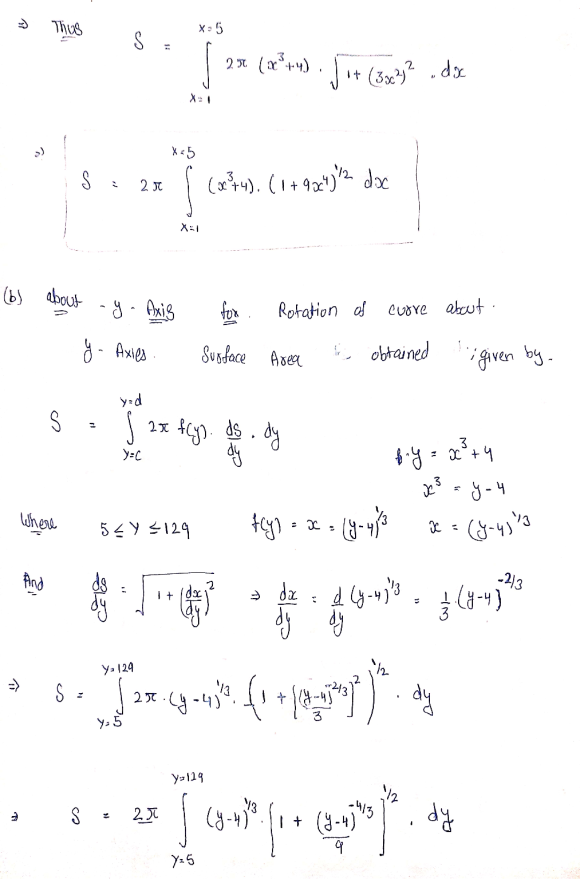 ⇒ Thus S = ∫_{x=1}^{x=5} 2π (x³+4) . √(1 + (3x²)²) . dx
⇒ S = 2π ∫_{x=1}^{x=5} (x³+4) . (1 + 9x⁴)^{1/2} dx
(b) about - y - Axis for . Rotation of curve about .
y - Axies . Surface Area obtained given by -
S = ∫_{y=c}^{y=d} 2π f(y) . ds/dy . dy
y = x³ + 4
x³ = y - 4
Where 5 ≤ y ≤ 129 f(y) = x = (y-4)^{1/3} x = (y-4)^{1/3}
And ds/dy = √(1 + (dx/dy)²) ⇒ dx/dy = d/dy (y-4)^{1/3} = 1/3 (y-4)^{-2/3}
⇒ S = ∫_{y=5}^{y=129} 2π . (y-4)^{1/3} . (1 + [(y-4)^{-2/3}/3]²)^{1/2} . dy
⇒ S = 2π ∫_{y=5}^{y=129} (y-4)^{1/3} . [1 + (y-4)^{-4/3}/9]^{1/2} . dy